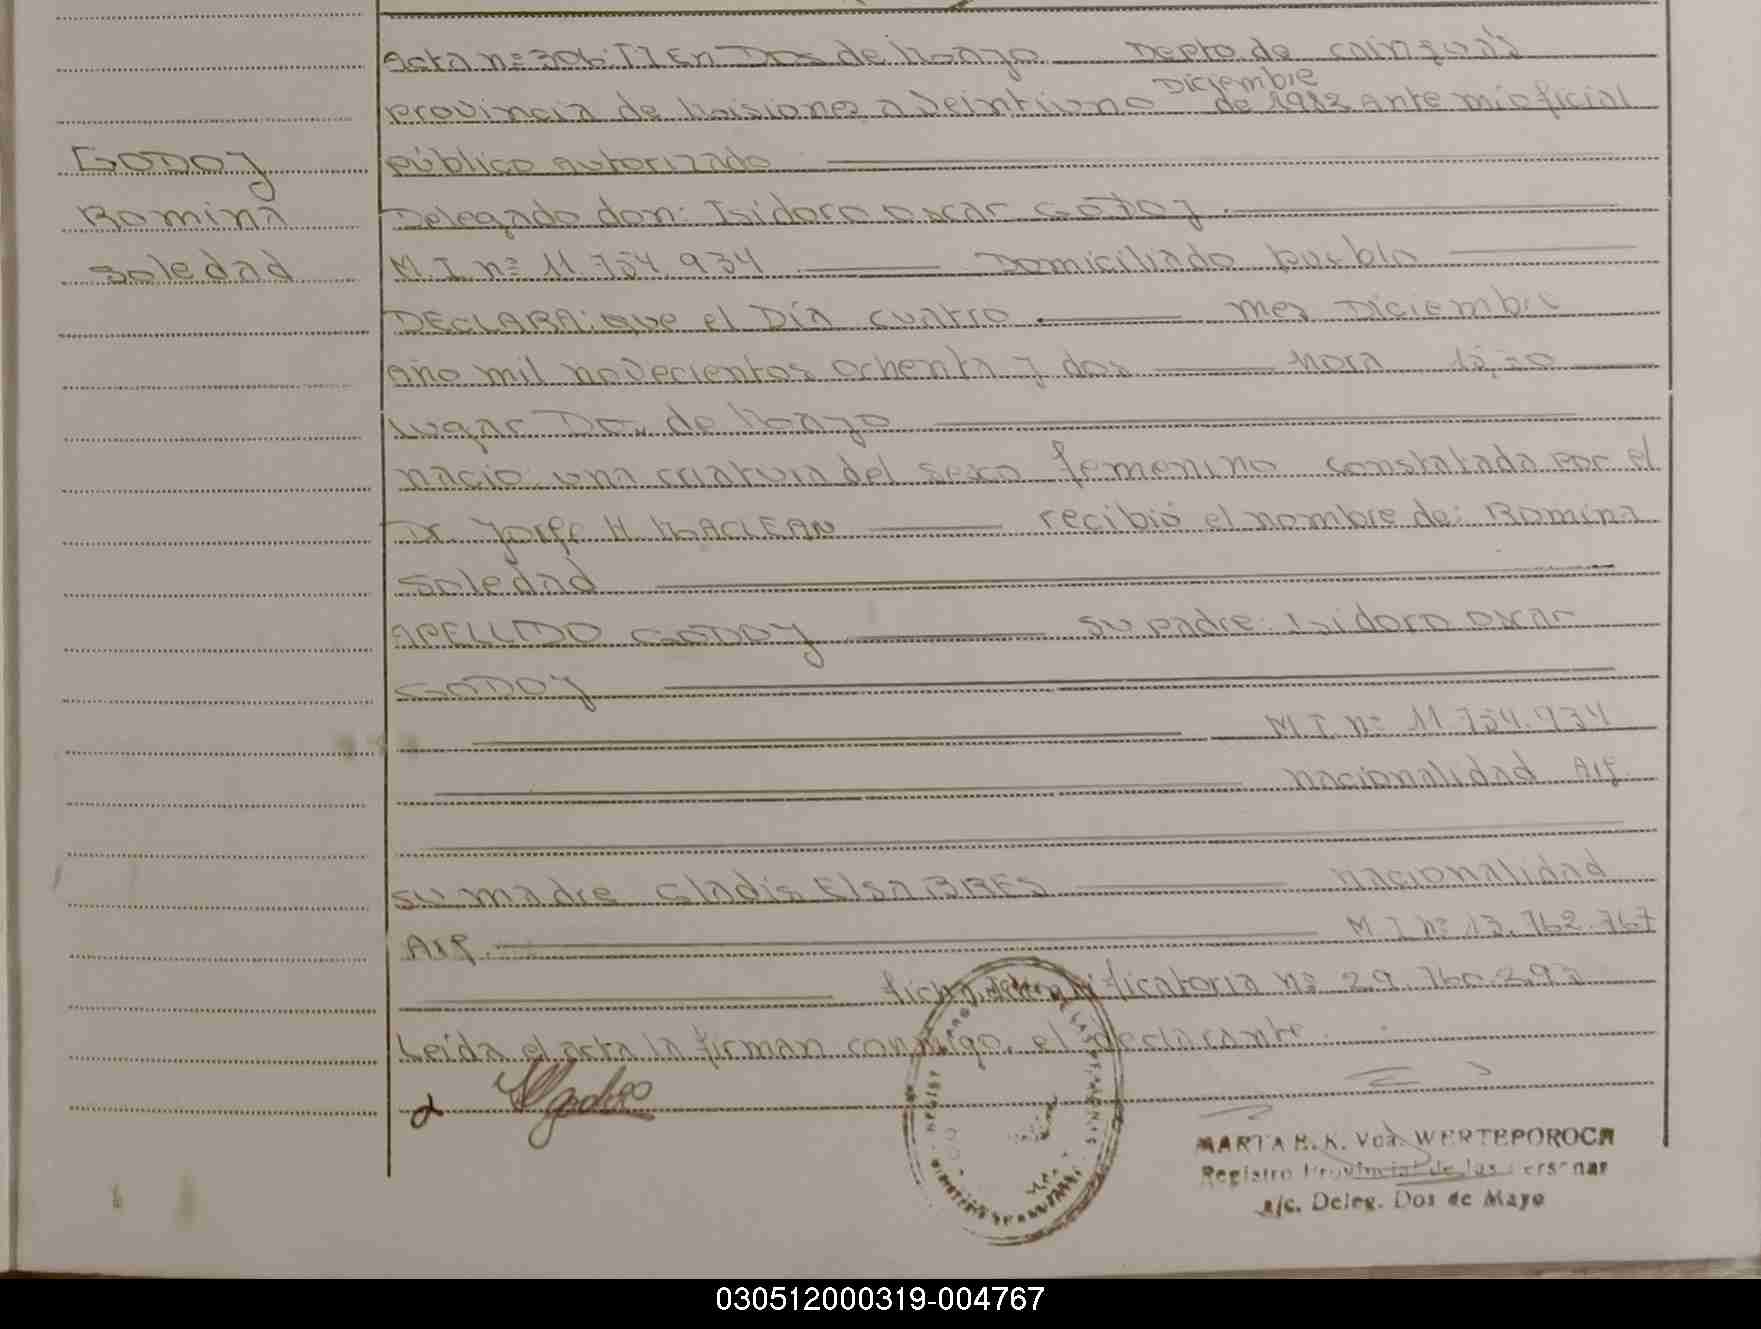 Acta nº 306: TI En Dos de Mayo Depto. de Cainguás
Diciembre
Provincia de Misiones a veintiuno de 1982 ante mi oficial
público autorizado
GODOY
Romina
Soledad
Delegado don: Isidoro Oscar GODOY
M.I. nº 11.754.934 Domiciliado Pueblo
DECLARA: que el Día cuatro mes Diciembre
año mil novecientos ochenta y dos hora
Lugar Dos de Mayo
nacio: una criatura del sexo femenino constatada por el
Dr. Jorge H. MACLEAN recibió el nombre de: Romina
Soledad
APELLIDO GODOY su padre: Isidoro Oscar
GODOY
M.I. nº 11.754.934
nacionalidad Arg.
su madre Gladis Elsa BRES nacionalidad
Arg. M.I nº 13.762.767
ficha identificatoria nº 29.760.292
Leida el acta la firman conmigo, el declarante.
MARTA H. K. Vda. WERTEPOROCH
Registro Provincial de las Personas
a/c. Deleg. Dos de Mayo
030512000319-004767